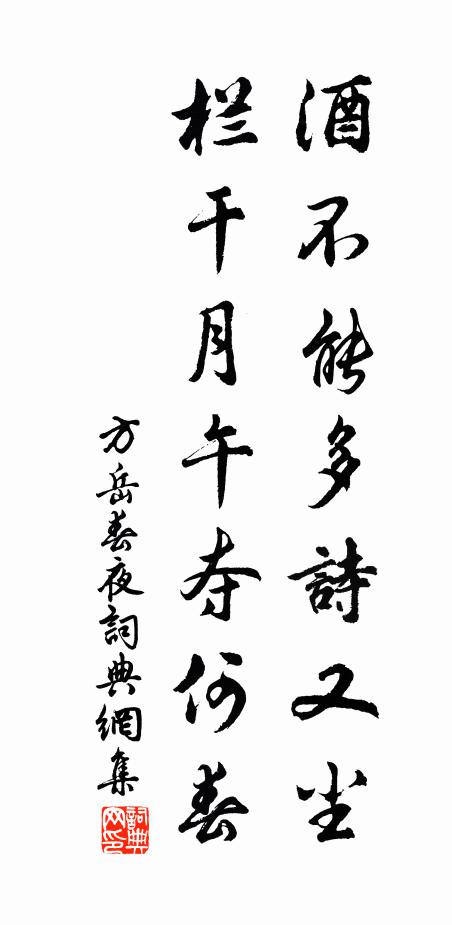 酒不能多詩又尘
栏干月午奈何春
方岳春夜詞典網集
詞典网印